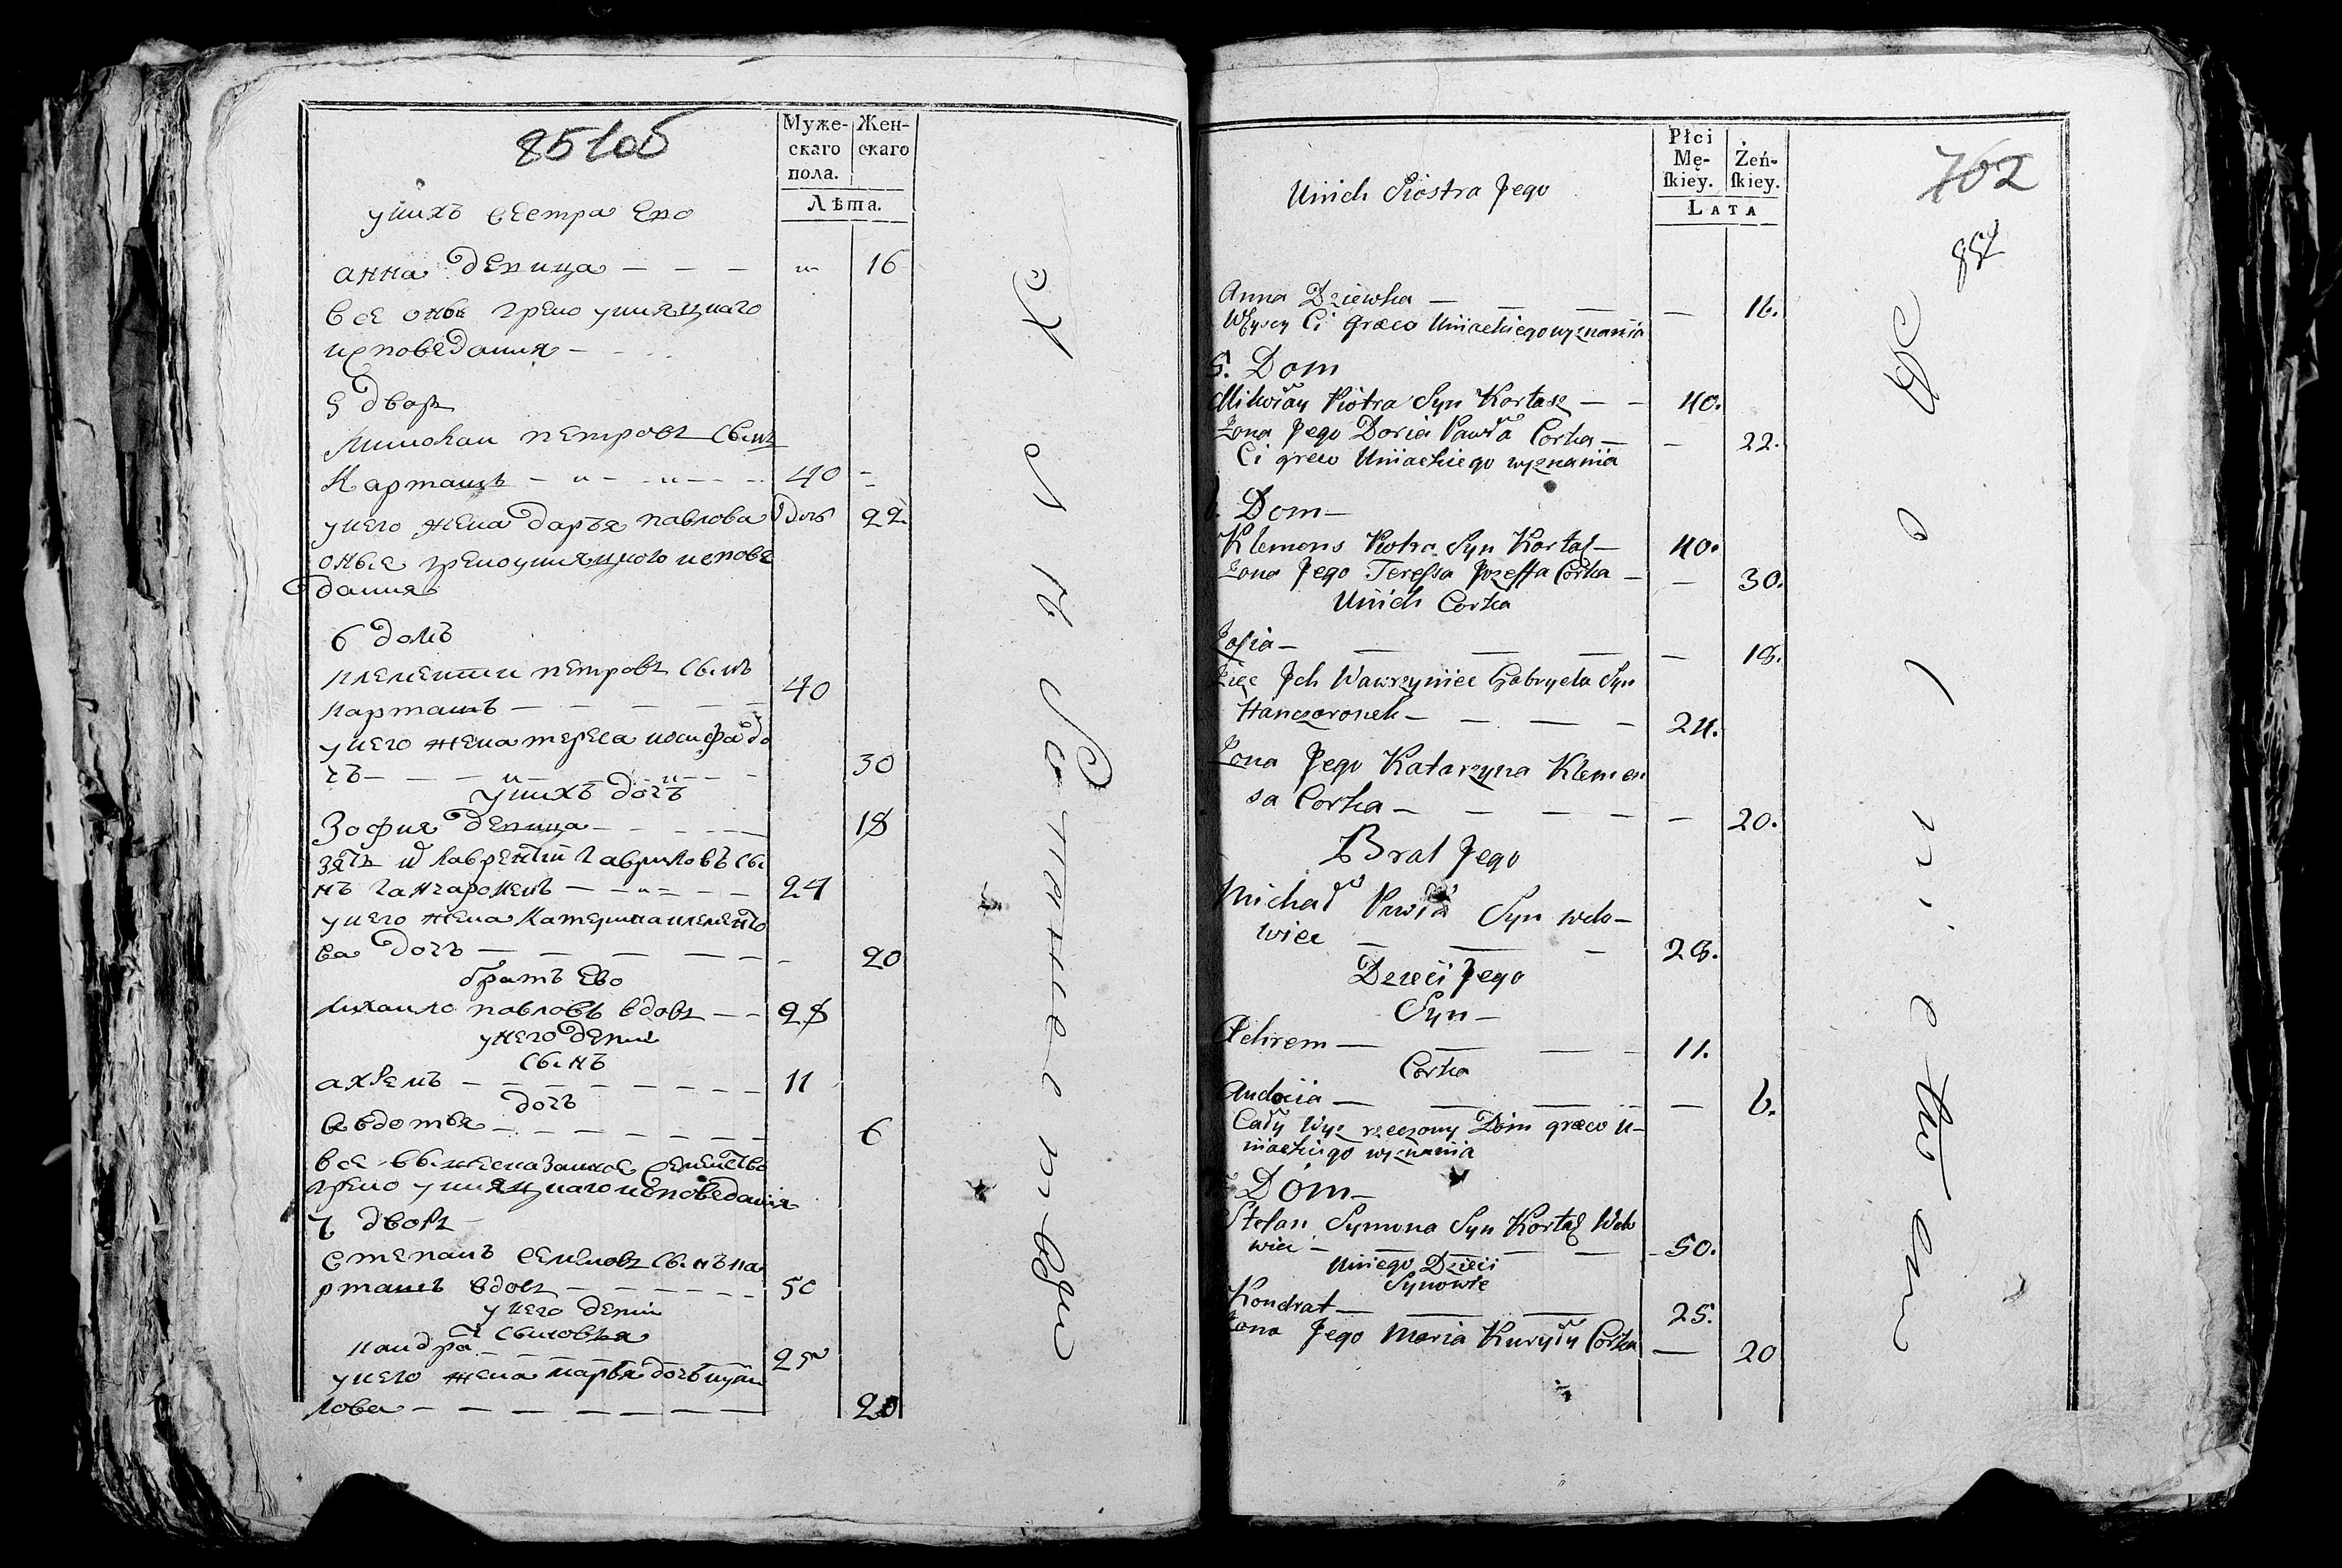 851об
Муже-
скаго
пола.
Жен-
скаго
Лѣта.
у нихъ сестра Ево
анна девица — — — „ 16
все оные греко униятцкаго
исповедания —
5 дворъ
Миколай петровъ сынъ
Карташъ — „ — „ — 40 —
у него жена дарья павлова дочь 22
оные грекоуниятцкого испове
дания
6 домъ
клементий петровъ сынъ
карташъ — — — — 40
у него жена тереса иосифа до
чъ — — „ — „ — 30
у нихъ дочъ
Зофия девица — — — 18
зять их лаврентий гавриловъ сы
нъ ганчаронекъ — — „ — — 24
у него жена катерина клеменъто
ва дочъ — — — — — 20
братъ Ево
михаило павловъ вдовъ — — 28
у него дети
сынъ
ахремъ — — — — — 11
дочъ
авдотья — — — — — 6
все вышесказанное семейство
греко униятцкаго исповедания
7 дворъ
степанъ семеновъ сынъ ка
рташъ вдовъ — — — — 50
у него дети
сыновья
кандра — — — 25
у него жена марья дочь кури
лова — — — — — — 20
Płci
Mę-
skiey.
Żeń-
skiey.
LATA
762
852
Unich Siostra Jego
Anna Dziewka — — — — 16.
Wszyscy Ci græco Uniackiego wyznania
5. Dom
Mikołay Piotra Syn Kortasz — — 40.
Żona Jego Doria Pawła Corka — — 22.
Ci greco Uniackiego wyznania
6. Dom —
Klemens Piotra Syn Kortasz — 40.
Żona Jego Teressa Jozeffa Corka — — 30.
Unich Corka
Zofia — — — — — 18.
Zięc Jch Wawrzyniec Gabryela Syn
Hanczoronek — — — — 24.
Żona Jego Katarzyna Klemen
sa Corka — — — — — 20.
Brat Jego
Michał Pawła Syn wdo—
wiec — — — 28.
Dzieci Jego
Syn —
Achrem — — — — 11.
Corka
Audocia — — — — — 6.
Cały Wyz rzeczony Dom græco U—
niackiego wyznania
7 Dom —
Stefan Symona Syn Kortasz Wdo
wiec — — — — — 50.
Uniego Dzieci
Synowie
Kondrat — — — 25.
Żona Jego Maria Kuryły Corka — 20